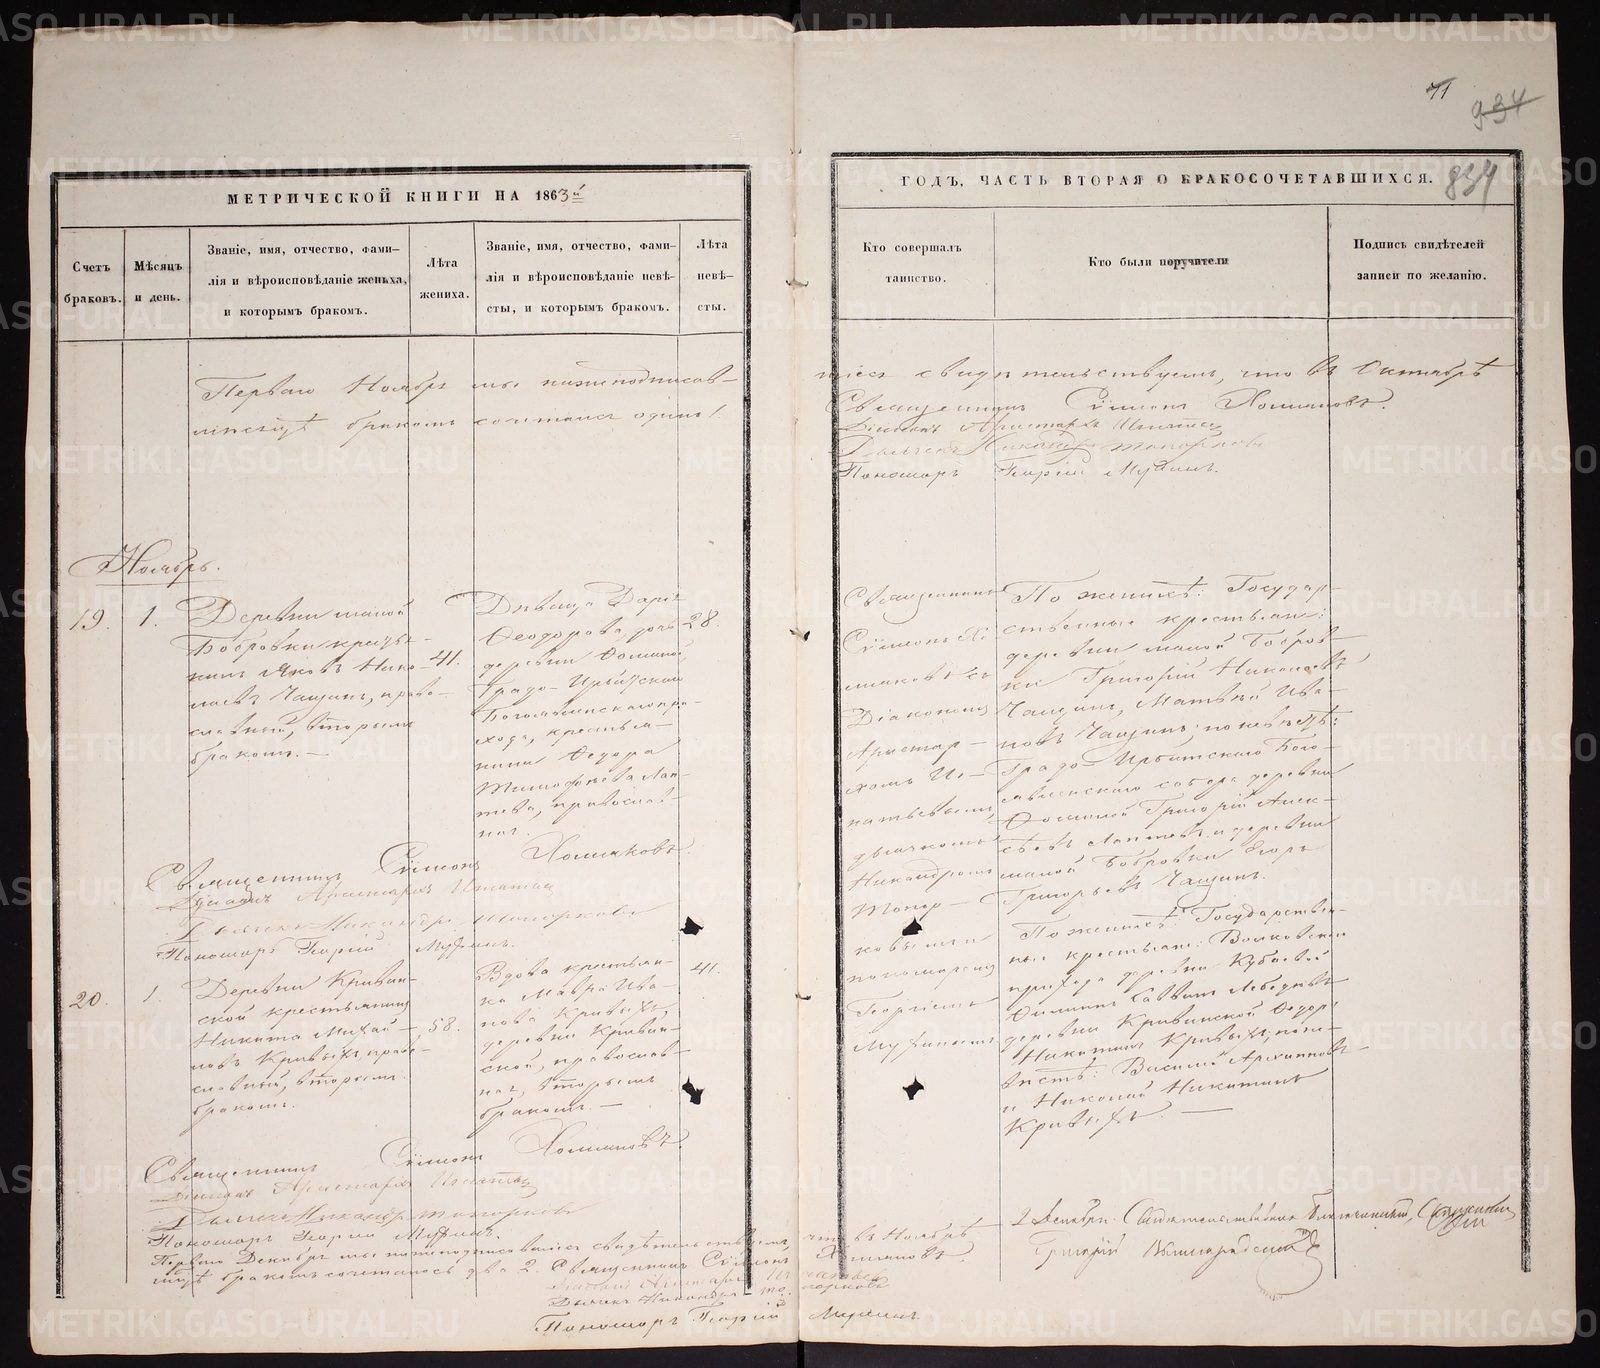 71
934
834
МЕТРИЧЕСКОЙ КНИГИ НА 1863й
ГОДЪ, ЧАСТЬ ВТОРАЯ О БРАКОСОЧЕТАВШИХСЯ.
Счетъ
браковъ.
Мѣсяцъ
и день.
Званіе, имя, отчество, фами-
лія и вѣроисповѣданіе жениха,
и которымъ бракомъ.
Лѣта
жениха.
Званіе, имя, отчество, фами-
лія и вѣроисповѣданіе невѣ-
сты, и которымъ бракомъ.
Лѣта
невѣ-
сты.
Кто совершалъ
таинство.
Кто были поручители
Подпись свидѣтелей
записи по желанію.
Перваго Ноября мы нижеподписав-
шіеся свидѣтельствуемъ, что въ Октябрѣ
мѣсяцѣ бракомъ сочетался одинъ 1.
Священникъ Сѵмеонъ Хомяковъ.
Діаконъ Аристархъ Игнатьев
Дьячекъ Никандръ Топорковъ
Пономарь Георгій Мухинъ.
Ноябрь.
19.
1.
Деревни малой
Бобровки кресть-
нинъ Яковъ Нико-
лаевъ Чащинъ, право-
славный, вторымъ
бракомъ. —
41.
Дѣвица Дарія
Ѳеодорова, дочь
деревни Ѳоминой
Градо-Ирбитскаго
Богоявленскаго при-
хода, крестья-
нина Ѳедора
Тимофеева Лап-
тева, православ-
ная.
28.
Священникъ
Сѵмеонъ Хо-
мяковъ съ
Діакономъ
Аристар-
хомъ Иг-
натьевымъ,
дьячкомъ
Никандромъ
Топор-
ковымъ и
пономаремъ
Георгіемъ
Мухинымъ
По женихѣ: Государ-
ственные крестьяне:
деревни малой Бобров-
ки Григорій Николаевъ
Чащинъ, Матвѣй Ива-
новъ Чащинъ; по невѣстѣ:
Градо-Ирбитскаго Бого-
явленскаго собора деревни
Ѳоминой Григорій Алек-
сѣевъ Лаптевъ и деревни
малой Бобровки Егоръ
Григорьевъ Чащинъ.
Священникъ Сѵмеонъ Хомяковъ.
Діаконъ Аристархъ Игнатьев
Дьячекъ Никандръ Топорковъ
Пономарь Георгій Мухинъ.
20.
1.
Деревни Кривин-
ской крестьянинъ
Никита Михай-
ловъ Кривыхъ, право-
славный, вторымъ
бракомъ.
58.
Вдова крестьян-
ка Мавра Ива-
нова Кривыхъ
деревни Кривин-
ской, православ-
ная, вторымъ
бракомъ. —
41.
По женихѣ: Государствен-
ные крестьяне: Волковскаго
прихода деревни Кубаевой
Филиппъ Саввинъ Лебедкинъ
деревни Кривинской Ѳедоръ
Никитинъ Кривыхъ; по не-
вѣстѣ: Василій Архиповъ
и Николай Никитинъ
Кривыхъ —
Священникъ Сѵмеонъ Хомяковъ
Діаконъ Аристархъ Игнатьев
Дьячекъ Никандръ Топорковъ
Пономарь Георгій Мухинъ.
Перваго Декабря мы нижеподписавшіеся свидѣтельствуемъ, что въ Ноябрѣ
мѣсяцѣ бракомъ сочеталось два 2. Священникъ Сѵмеонъ Хомяковъ.
Діаконъ Аристархъ Игнатьев
Дьячекъ Никандръ Топорковъ
Пономарь Георгій Мухинъ.
2 Декабря. Свидѣтельствовалъ Благочинный, Священникъ
Григорій